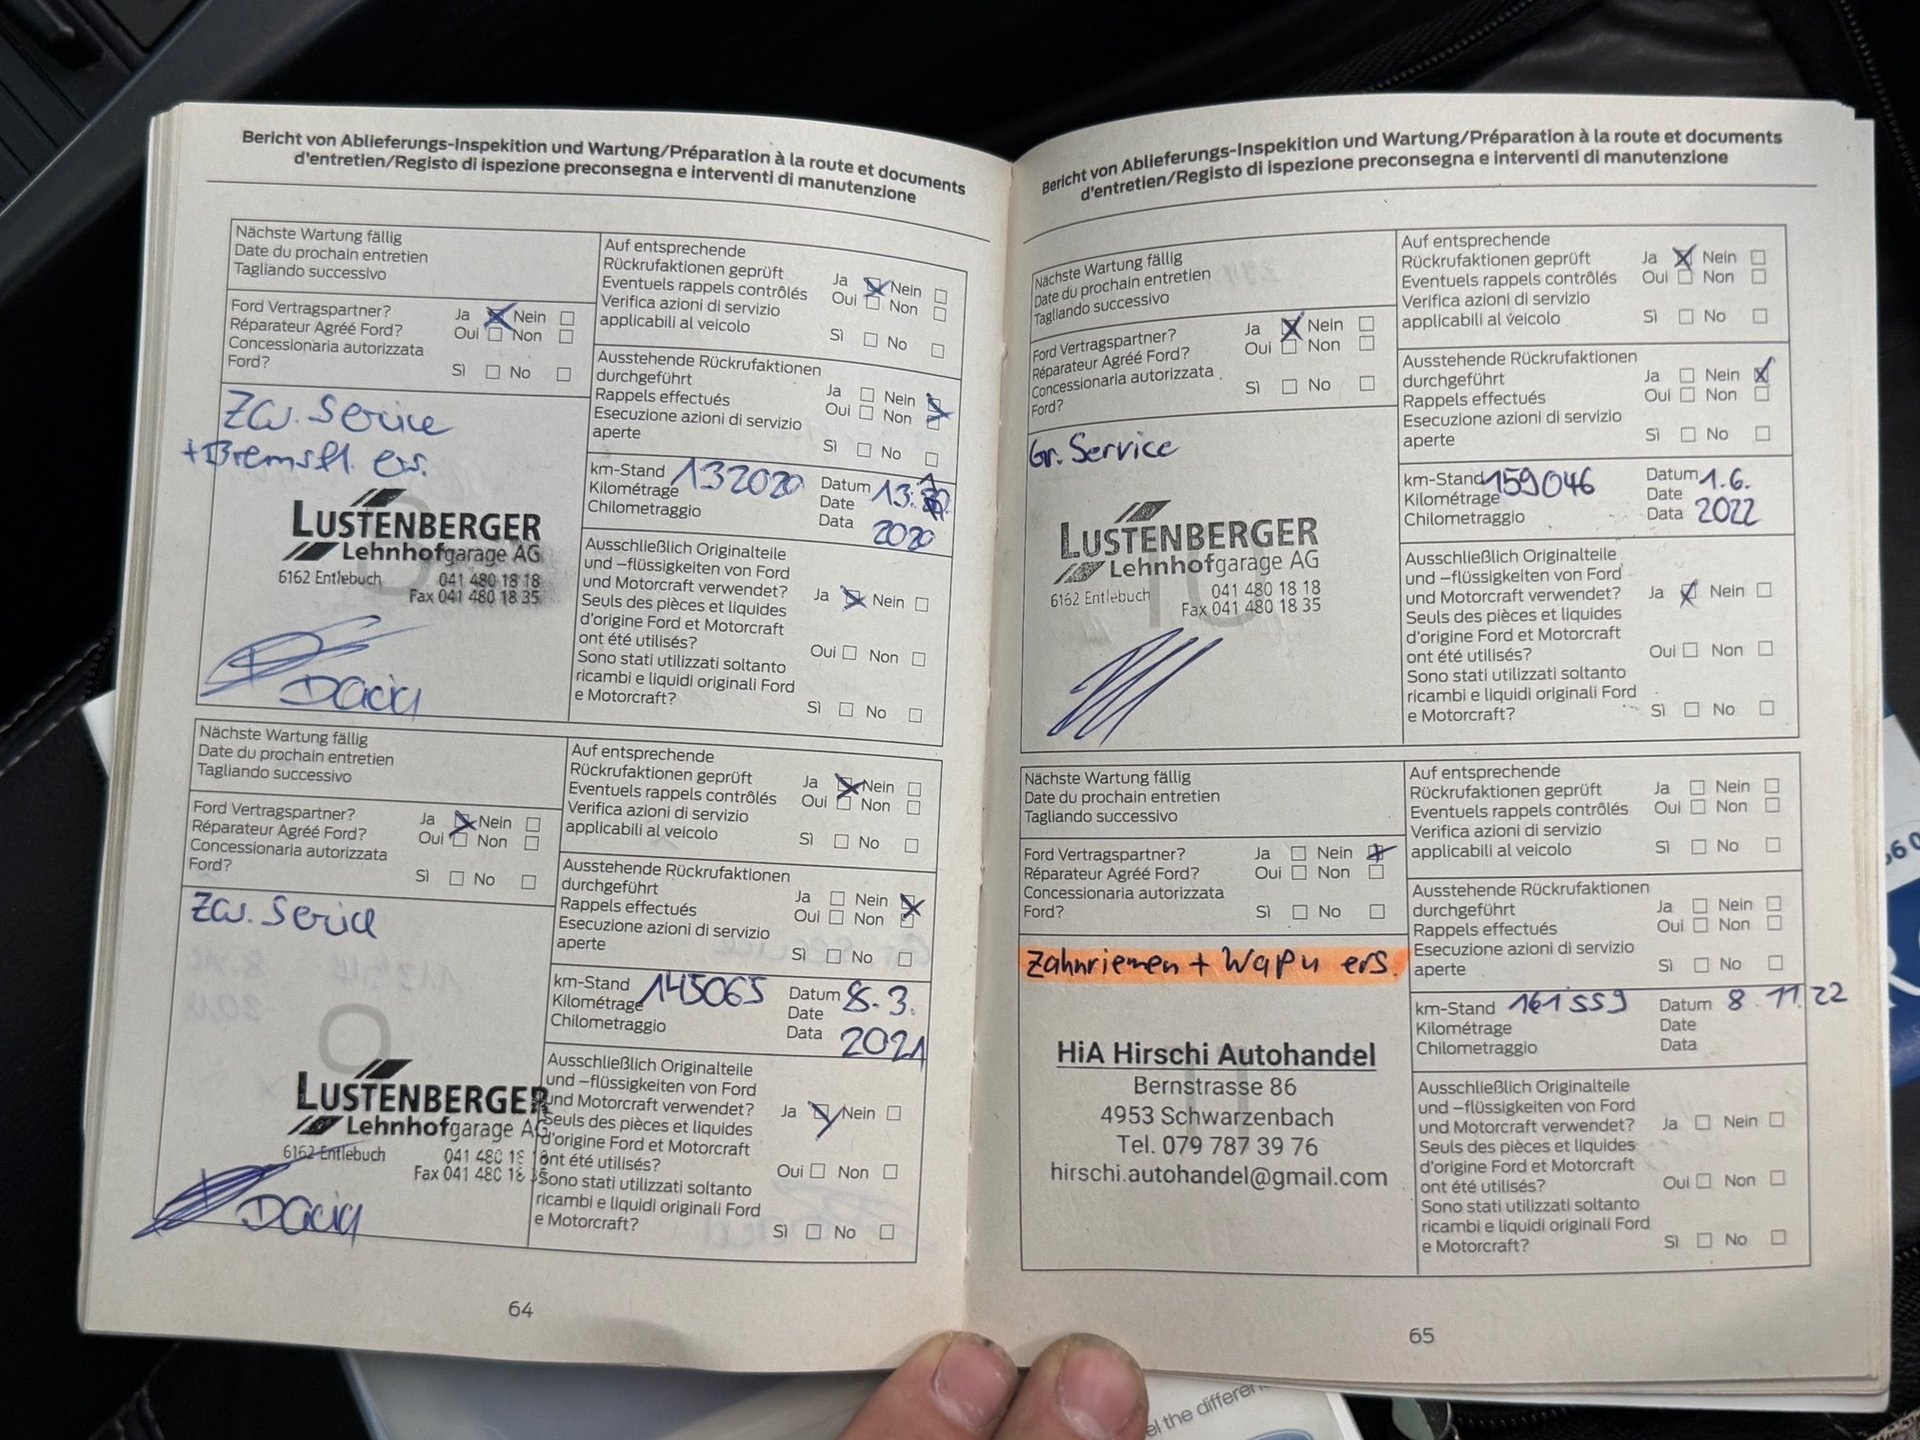 Bericht von Ablieferungs-Inspekition und Wartung/Préparation à la route et documents
d'entretien/Registo di ispezione preconsegna e interventi di manutenzione
Nächste Wartung fällig
Date du prochain entretien
Tagliando successivo
Ford Vertragspartner?
Réparateur Agréé Ford?
Concessionaria autorizzata
Ford?
Ja Nein
Oui Non
Sì No
Zw. Service
+Bremsfl. ers.
LUSTENBERGER
Lehnhofgarage AG
6162 Entlebuch 041 480 18 18
Fax 041 480 18 35
Dacia
Auf entsprechende
Rückrufaktionen geprüft
Eventuels rappels contrôlés
Verifica azioni di servizio
applicabili al veicolo
Ja Nein
Oui Non
Sì No
Ausstehende Rückrufaktionen
durchgeführt
Rappels effectués
Esecuzione azioni di servizio
aperte
Ja Nein
Oui Non
Sì No
km-Stand 132020
Kilométrage
Chilometraggio
Datum 13.
Date
Data 2020
Ausschließlich Originalteile
und –flüssigkeiten von Ford
und Motorcraft verwendet?
Seuls des pièces et liquides
d'origine Ford et Motorcraft
ont été utilisés?
Sono stati utilizzati soltanto
ricambi e liquidi originali Ford
e Motorcraft?
Ja Nein
Oui Non
Sì No
Nächste Wartung fällig
Date du prochain entretien
Tagliando successivo
Ford Vertragspartner?
Réparateur Agréé Ford?
Concessionaria autorizzata
Ford?
Ja Nein
Oui Non
Sì No
Zw. Service
LUSTENBERGER
Lehnhofgarage AG
6162 Entlebuch 041 480 18 18
Fax 041 480 18 35
Dacia
Auf entsprechende
Rückrufaktionen geprüft
Eventuels rappels contrôlés
Verifica azioni di servizio
applicabili al veicolo
Ja Nein
Oui Non
Sì No
Ausstehende Rückrufaktionen
durchgeführt
Rappels effectués
Esecuzione azioni di servizio
aperte
Ja Nein
Oui Non
Sì No
km-Stand 145065
Kilométrage
Chilometraggio
Datum 8.3.
Date
Data 2021
Ausschließlich Originalteile
und –flüssigkeiten von Ford
und Motorcraft verwendet?
Seuls des pièces et liquides
d'origine Ford et Motorcraft
ont été utilisés?
Sono stati utilizzati soltanto
ricambi e liquidi originali Ford
e Motorcraft?
Ja Nein
Oui Non
Sì No
64
Bericht von Ablieferungs-Inspekition und Wartung/Préparation à la route et documents
d'entretien/Registo di ispezione preconsegna e interventi di manutenzione
Nächste Wartung fällig
Date du prochain entretien
Tagliando successivo
Ford Vertragspartner?
Réparateur Agréé Ford?
Concessionaria autorizzata
Ford?
Ja Nein
Oui Non
Sì No
Gr. Service
LUSTENBERGER
Lehnhofgarage AG
6162 Entlebuch 041 480 18 18
Fax 041 480 18 35
Auf entsprechende
Rückrufaktionen geprüft
Eventuels rappels contrôlés
Verifica azioni di servizio
applicabili al veicolo
Ja Nein
Oui Non
Sì No
Ausstehende Rückrufaktionen
durchgeführt
Rappels effectués
Esecuzione azioni di servizio
aperte
Ja Nein
Oui Non
Sì No
km-Stand 159046
Kilométrage
Chilometraggio
Datum 1.6.
Date
Data 2022
Ausschließlich Originalteile
und –flüssigkeiten von Ford
und Motorcraft verwendet?
Seuls des pièces et liquides
d'origine Ford et Motorcraft
ont été utilisés?
Sono stati utilizzati soltanto
ricambi e liquidi originali Ford
e Motorcraft?
Ja Nein
Oui Non
Sì No
Nächste Wartung fällig
Date du prochain entretien
Tagliando successivo
Ford Vertragspartner?
Réparateur Agréé Ford?
Concessionaria autorizzata
Ford?
Ja Nein
Oui Non
Sì No
Zahnriemen + Wapu ers.
HiA Hirschi Autohandel
Bernstrasse 86
4953 Schwarzenbach
Tel. 079 787 39 76
hirschi.autohandel@gmail.com
Auf entsprechende
Rückrufaktionen geprüft
Eventuels rappels contrôlés
Verifica azioni di servizio
applicabili al veicolo
Ja Nein
Oui Non
Sì No
Ausstehende Rückrufaktionen
durchgeführt
Rappels effectués
Esecuzione azioni di servizio
aperte
Ja Nein
Oui Non
Sì No
km-Stand 161559
Kilométrage
Chilometraggio
Datum 8.11.22
Date
Data
Ausschließlich Originalteile
und –flüssigkeiten von Ford
und Motorcraft verwendet?
Seuls des pièces et liquides
d'origine Ford et Motorcraft
ont été utilisés?
Sono stati utilizzati soltanto
ricambi e liquidi originali Ford
e Motorcraft?
Ja Nein
Oui Non
Sì No
65
the